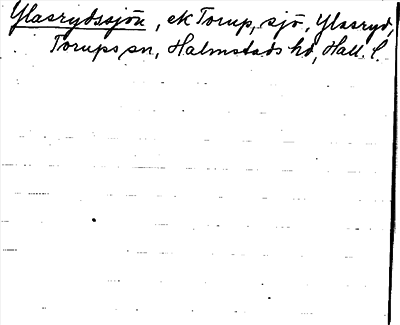 Ylasrydssjön, ek Torup, sjö, Ylasryd,
Torups sn, Halmstads hd, Hall. l.